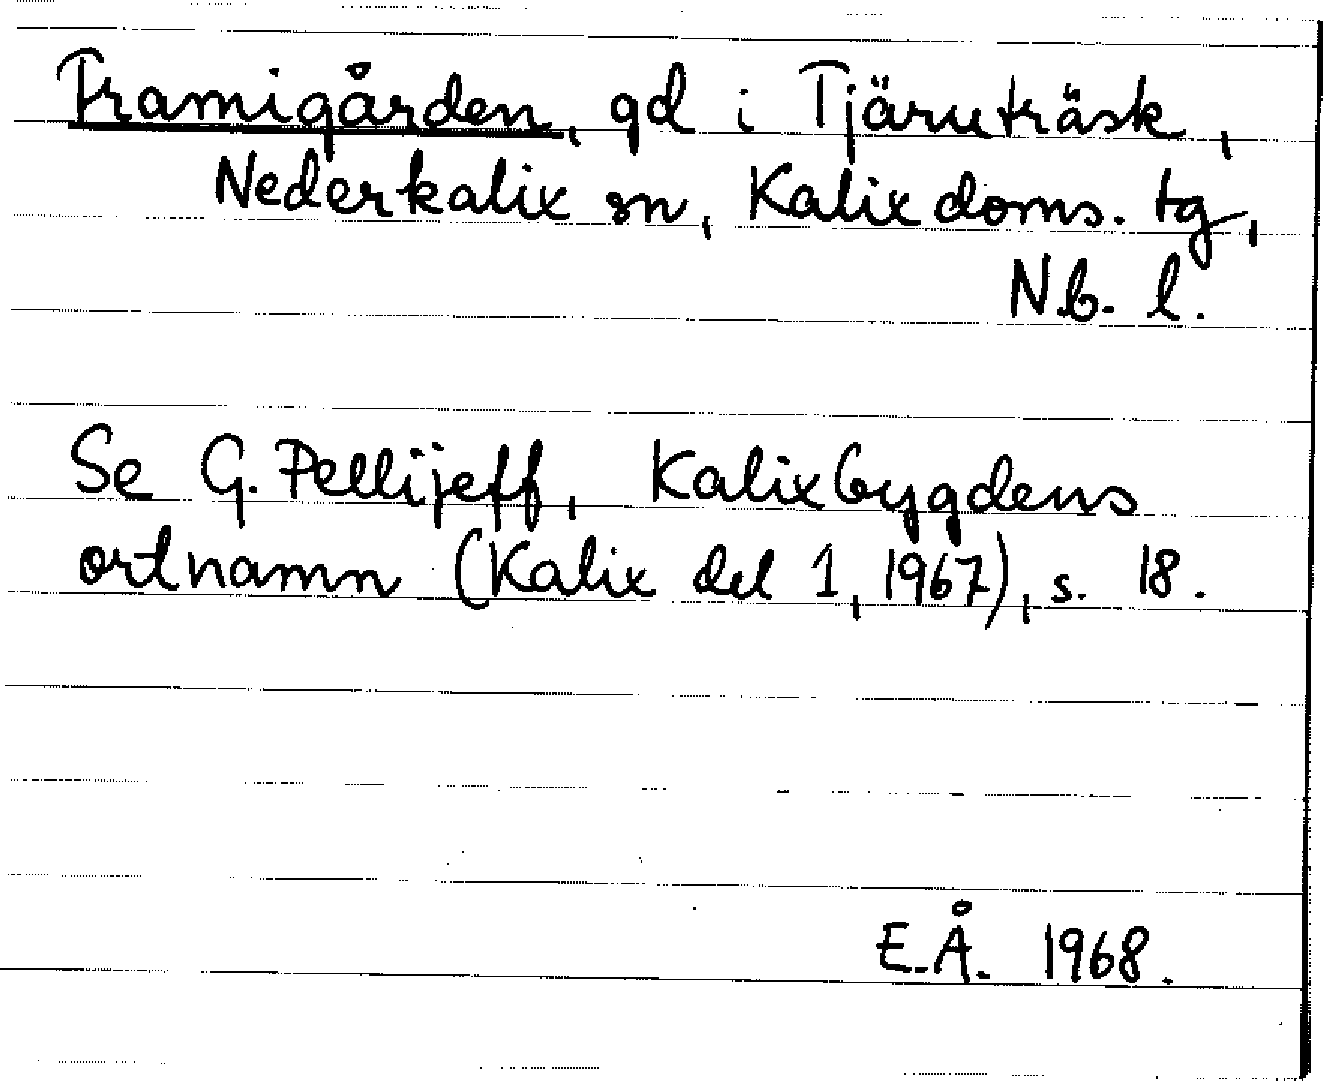 Framigården, gd i Tjäruträsk,
Nederkalix sn, Kalix doms. tg,
N.b. l.
Se G. Pellijeff, Kalixbygdens
ortnamn (Kalix del 1, 1967), s. 18.
E.Å. 1968.